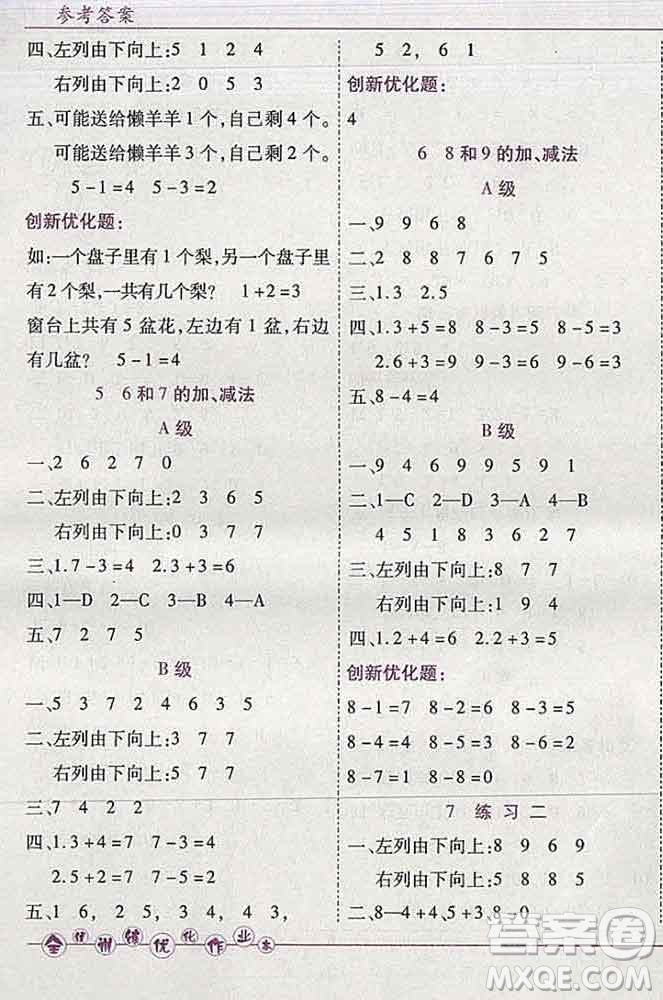 参考答案
四、左列由下向上:5 1 2 4
右列由下向上:2 0 5 3
五、可能送给懒羊羊1个,自己剩4个。
可能送给懒羊羊3个,自己剩2个。
5-1=4 5-3=2
创新优化题:
如:一个盘子里有1个梨,另一个盘子里
有2个梨,一共有几个梨? 1+2=3
窗台上共有5盆花,左边有1盆,右边
有几盆? 5-1=4
5 6和7的加、减法
A级
一、2 6 2 7 0
二、左列由下向上:2 3 6 5
右列由下向上:0 3 7 7
三、1.7-3=4 2.3+3=6
四、1—D 2—C 3—B 4—A
五、7 2 7 5
B级
一、5 3 7 2 4 6 3 5
二、左列由下向上:3 7 7
右列由下向上:5 7 7
三、7 4 2 2
四、1.3+4=7 7-3=4
2.5+2=7 7-2=5
五、1 6, 2 5, 3 4, 4 3,
5 2, 6 1
创新优化题:
4
6 8和9的加、减法
A级
一、9 9 6 8
二、2 8 8 7 6 7 5
三、1.3 2.5
四、1.3+5=8 8-3=5 8-5=3
2.6+3=9 9-3=6 9-6=3
五、8-4=4
B级
一、9 4 6 9 9 5 9 1
二、1—C 2—A 3—D 4—B
4 5 1 8 3 6 2 7
三、左列由下向上:8 7 7
右列由下向上:1 9 4
四、1.2+4=6 2.2+3=5
创新优化题:
8-1=7 8-2=6 8-3=5
8-4=4 8-5=3 8-6=2
8-7=1 8-8=0
7 练习二
一、左列由下向上:8 9 6 9
右列由下向上:5 8 8 5
二、8-4+4,5 9-0,8-0
全程训练优化作业本
答案圈
MXQE.COM